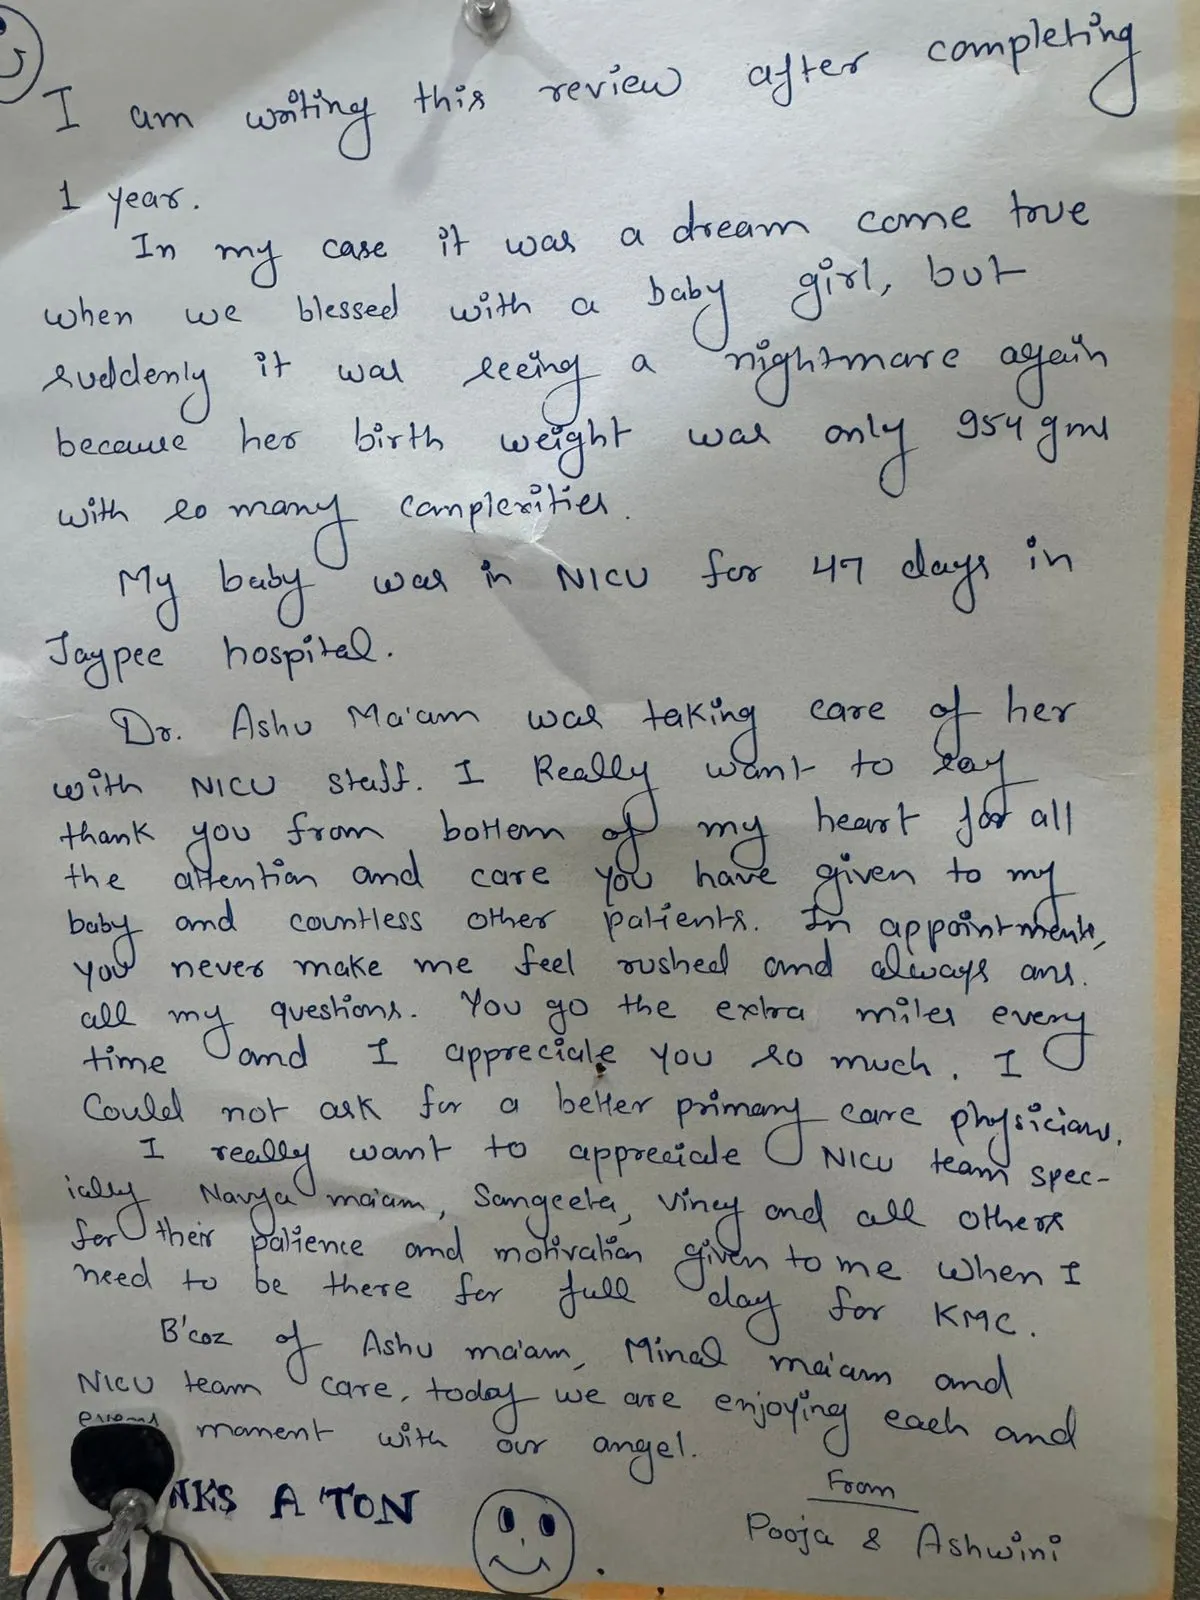 I am writing this review after completing
1 year.
In my case it was a dream come true
when we blessed with a baby girl, but
suddenly it was seeing a nightmare again
because her birth weight was only 954 gms
with so many complexities.
My baby was in NICU for 47 days in
Jaypee hospital.
Dr. Ashu Ma'am was taking care of her
with NICU staff. I Really want to say
thank you from bottom of my heart for all
the attention and care you have given to my
baby and countless other patients. In appointments,
you never make me feel rushed and always ans.
all my questions. You go the extra miles every
time and I appreciate you so much. I
Could not ask for a better primary care physician.
I really want to appreciate NICU team spec-
ially Navya ma'am, Sangeeta, Viney and all others
for their patience and motivation given to me when I
need to be there for full day for KMC.
B'coz of Ashu ma'am, Minal ma'am and
NICU team care, today we are enjoying each and
every moment with our angel.
NKS A TON
From
Pooja & Ashwini